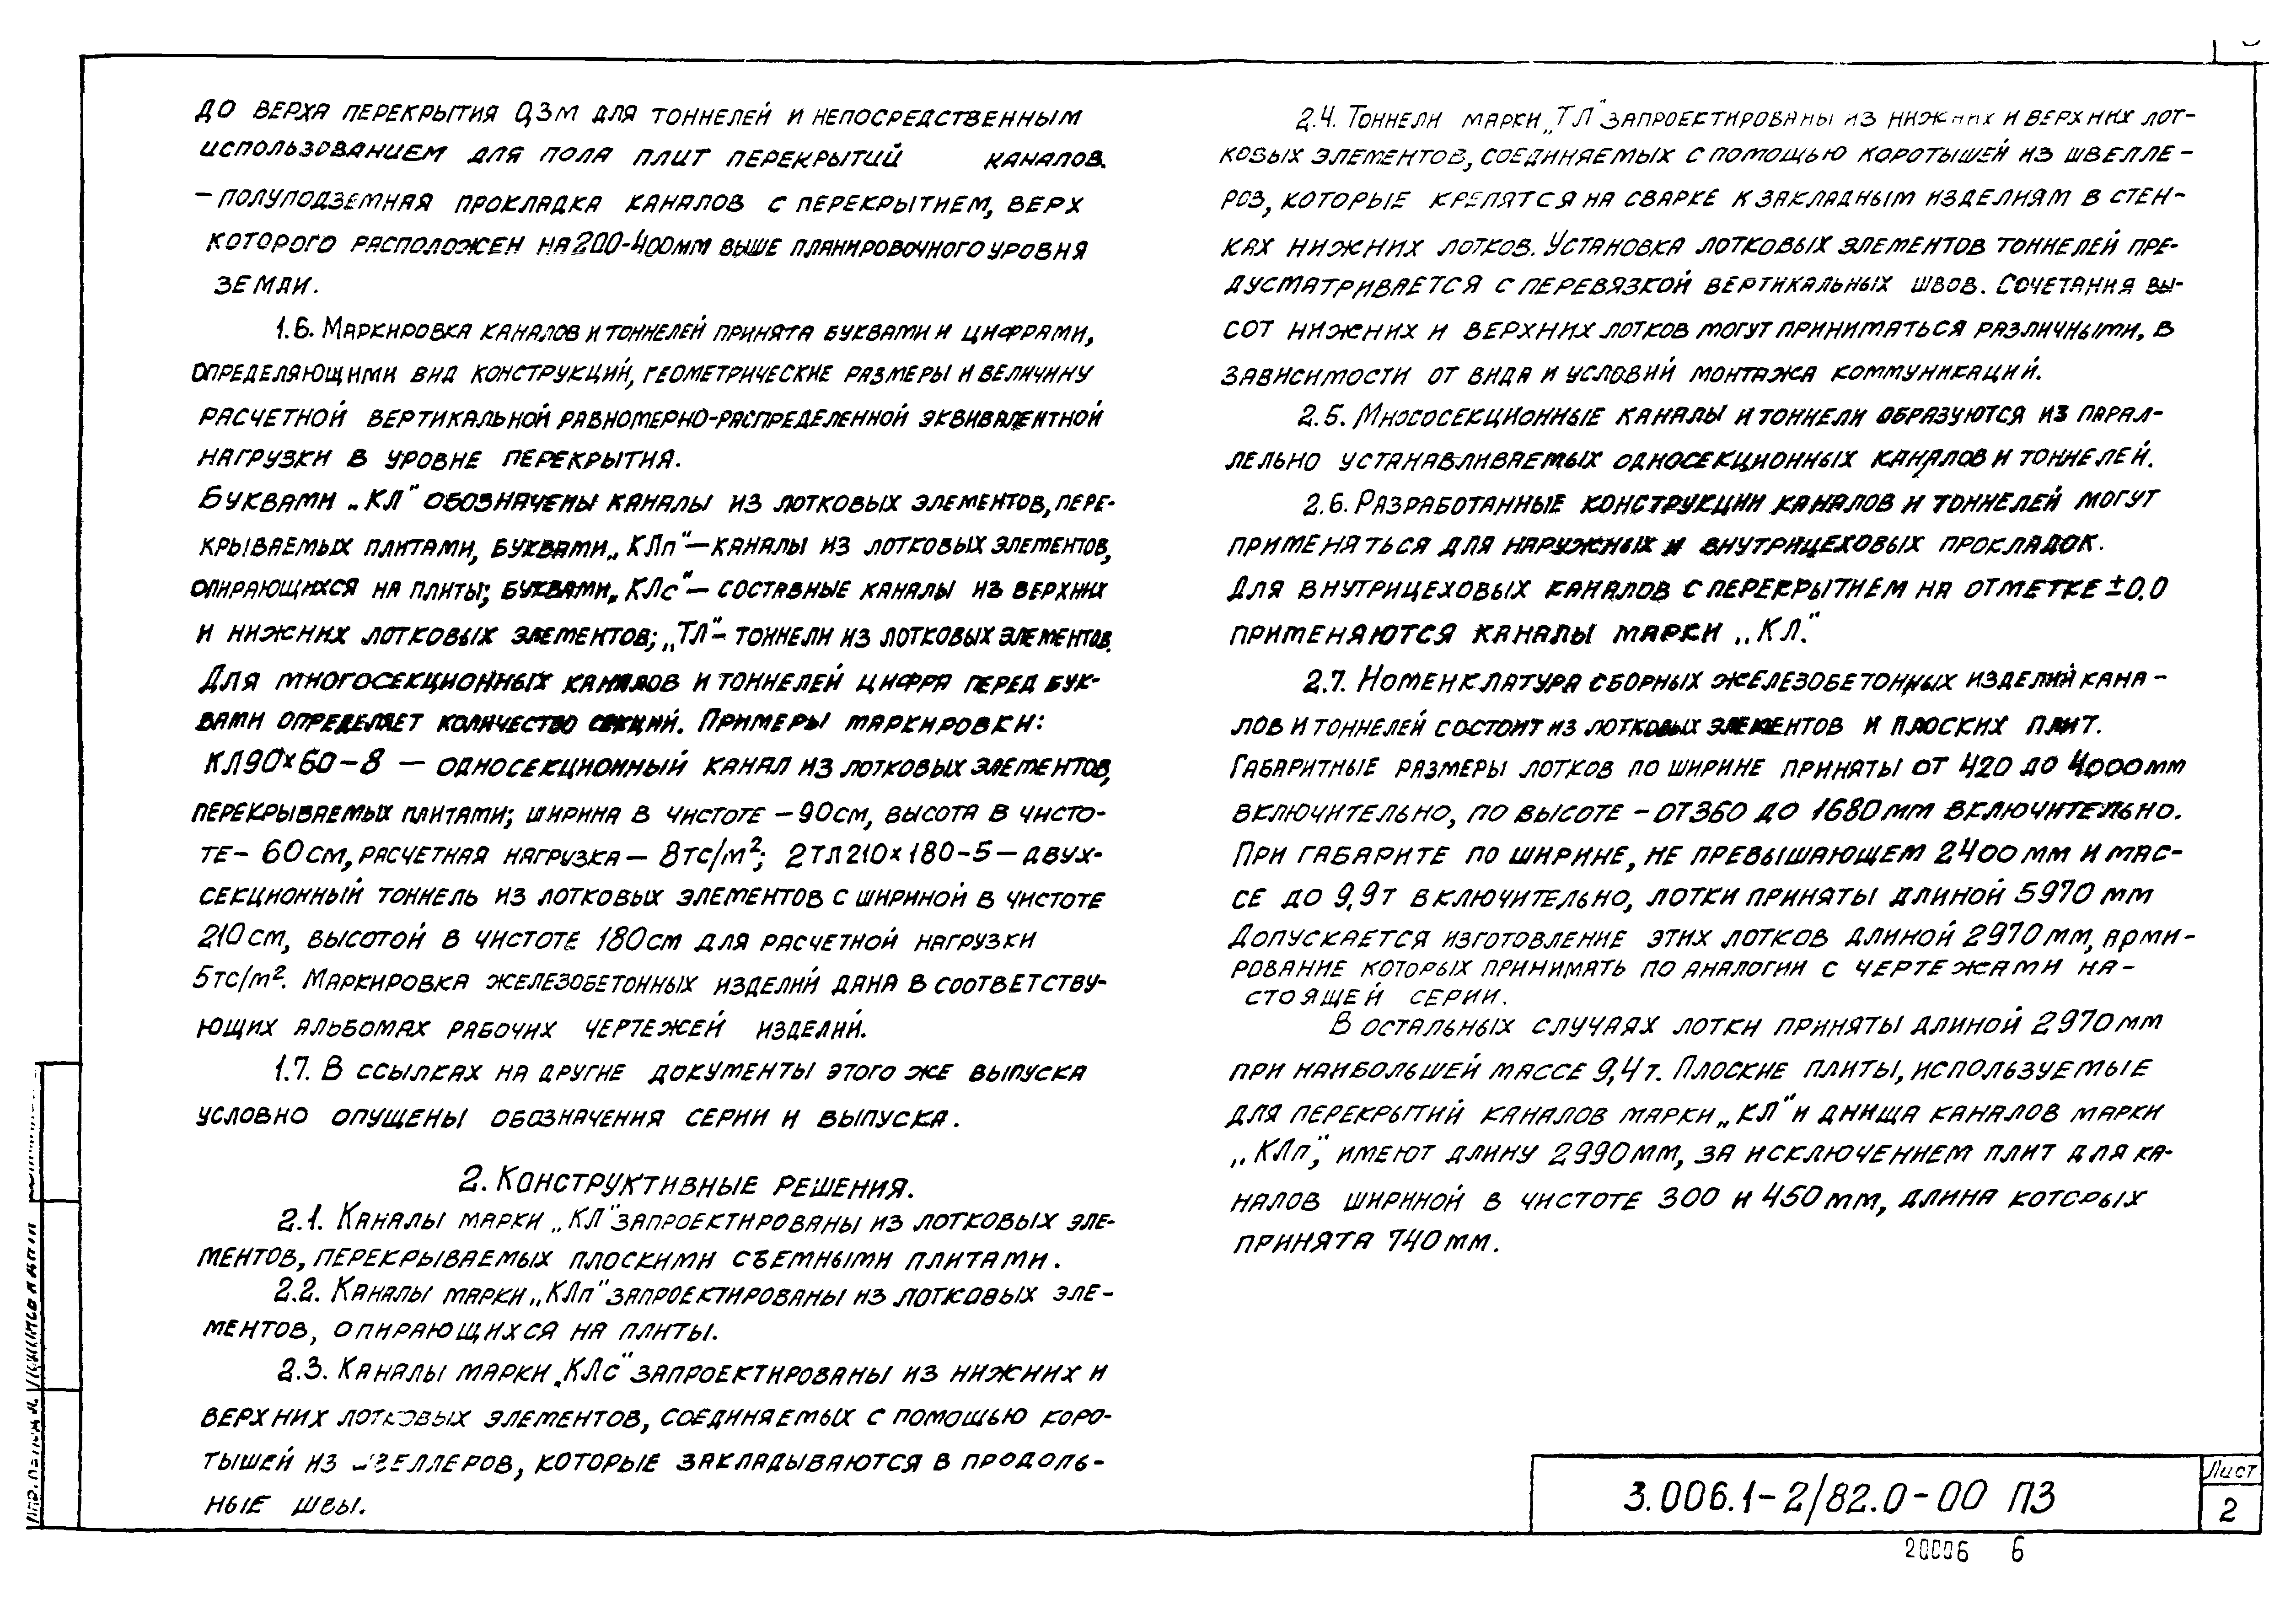 до верха перекрытия 0,3м для тоннелей и непосредственным
использованием для пола плит перекрытий каналов.
– полуподземная прокладка каналов с перекрытием, верх
которого расположен на 200-400мм выше планировочного уровня
земли.
1.6. Маркировка каналов и тоннелей принята буквами и цифрами,
определяющими вид конструкций, геометрические размеры и величину
расчетной вертикальной равномерно-распределенной эквивалентной
нагрузки в уровне перекрытия.
Буквами „КЛ" обозначены каналы из лотковых элементов, пере-
крываемых плитами, буквами „КЛп" – каналы из лотковых элементов,
опирающихся на плиты; буквами „КЛс" – составные каналы из верхних
и нижних лотковых элементов; „ТЛ" – тоннели из лотковых элементов.
Для многосекционных каналов и тоннелей цифра перед бук-
вами определяет количество секций. Примеры маркировки:
КЛ90×60-8 – односекционный канал из лотковых элементов,
перекрываемых плитами; ширина в чистоте – 90см, высота в чисто-
те – 60см, расчетная нагрузка – 8тс/м²; 2ТЛ210×180-5 – двух-
секционный тоннель из лотковых элементов с шириной в чистоте
210см, высотой в чистоте 180см для расчетной нагрузки
5тс/м². Маркировка железобетонных изделий дана в соответству-
ющих альбомах рабочих чертежей изделий.
1.7. В ссылках на другие документы этого же выпуска
условно опущены обозначения серии и выпуска.
2. Конструктивные решения.
2.1. Каналы марки „КЛ" запроектированы из лотковых эле-
ментов, перекрываемых плоскими съемными плитами.
2.2. Каналы марки „КЛп" запроектированы из лотковых эле-
ментов, опирающихся на плиты.
2.3. Каналы марки „КЛс" запроектированы из нижних и
верхних лотковых элементов, соединяемых с помощью коро-
тышей из швеллеров, которые закладываются в продоль-
ные швы.
2.4. Тоннели марки „ТЛ" запроектированы из нижних и верхних лот-
ковых элементов, соединяемых с помощью коротышей из швелле-
ров, которые крепятся на сварке к закладным изделиям в стен-
ках нижних лотков. Установка лотковых элементов тоннелей пре-
дусматривается с перевязкой вертикальных швов. Сочетания вы-
сот нижних и верхних лотков могут приниматься различными, в
зависимости от вида и условий монтажа коммуникаций.
2.5. Многосекционные каналы и тоннели образуются из парал-
лельно устанавливаемых односекционных каналов и тоннелей.
2.6. Разработанные конструкции каналов и тоннелей могут
применяться для наружных и внутрицеховых прокладок.
Для внутрицеховых каналов с перекрытием на отметке ±0.0
применяются каналы марки „КЛ."
2.7. Номенклатура сборных железобетонных изделий кана-
лов и тоннелей состоит из лотковых элементов и плоских плит.
Габаритные размеры лотков по ширине приняты от 420 до 4000мм
включительно, по высоте – от 360 до 1680мм включительно.
При габарите по ширине, не превышающем 2400мм и мас-
се до 9,9т включительно, лотки приняты длиной 5970мм
Допускается изготовление этих лотков длиной 2970мм, арми-
рование которых принимать по аналогии с чертежами на-
стоящей серии.
В остальных случаях лотки приняты длиной 2970мм
при наибольшей массе 9,4т. Плоские плиты, используемые
для перекрытий каналов марки „КЛ" и днища каналов марки
„КЛп", имеют длину 2990мм, за исключением плит для ка-
налов шириной в чистоте 300 и 450мм, длина которых
принята 740мм.
3.006.1-2/82.0-00 ПЗ
Лист
2
20006 6